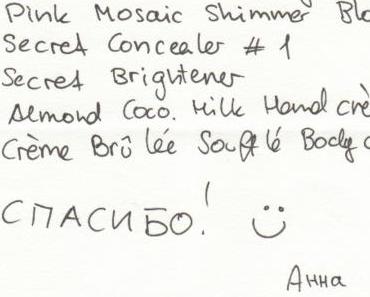 Pink Mosaic Shimmer Blo
Secret Concealer # 1
Secret Brightener
Almond Coco. Milk Hand crè
Crème Brûlée Soufflé Body c
СПАСИБО!
Анна